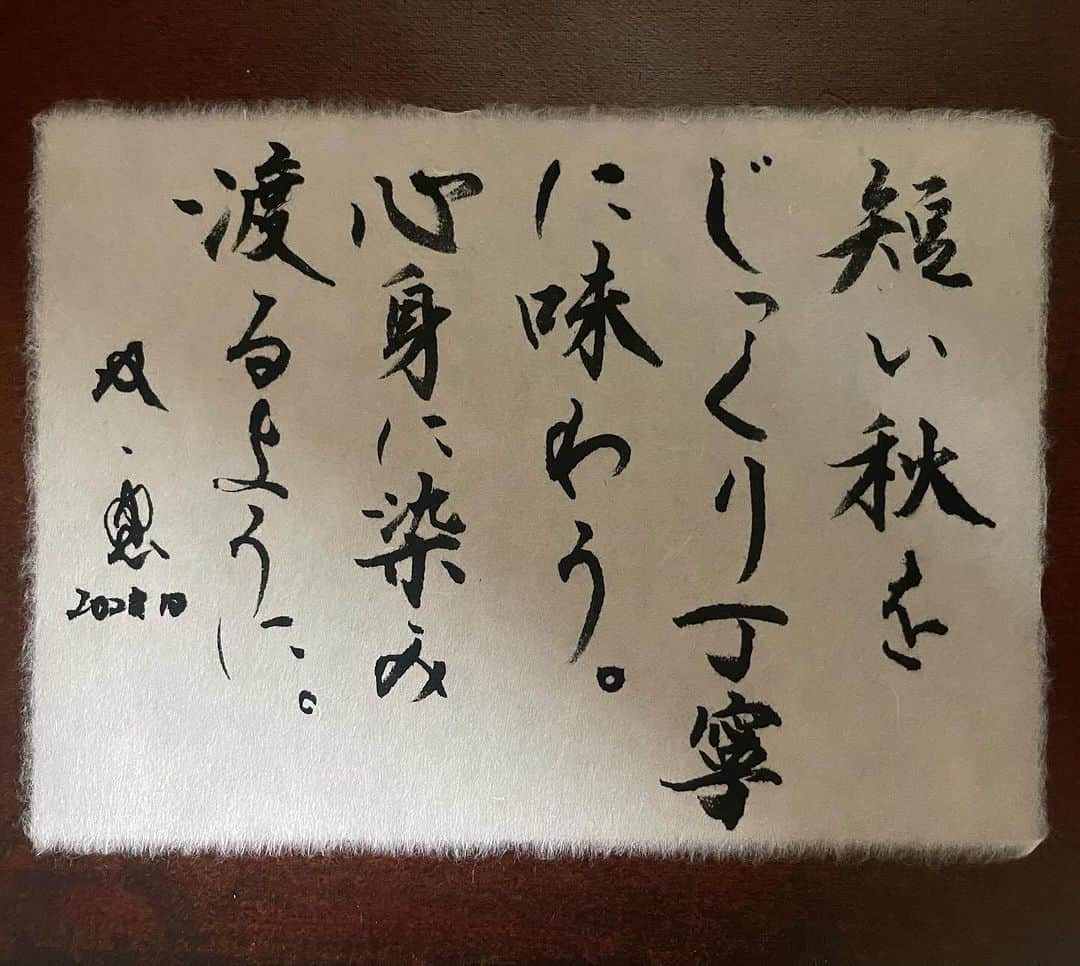 短い秋を
じっくり丁寧
に味わう。
心身に染み
渡るように。